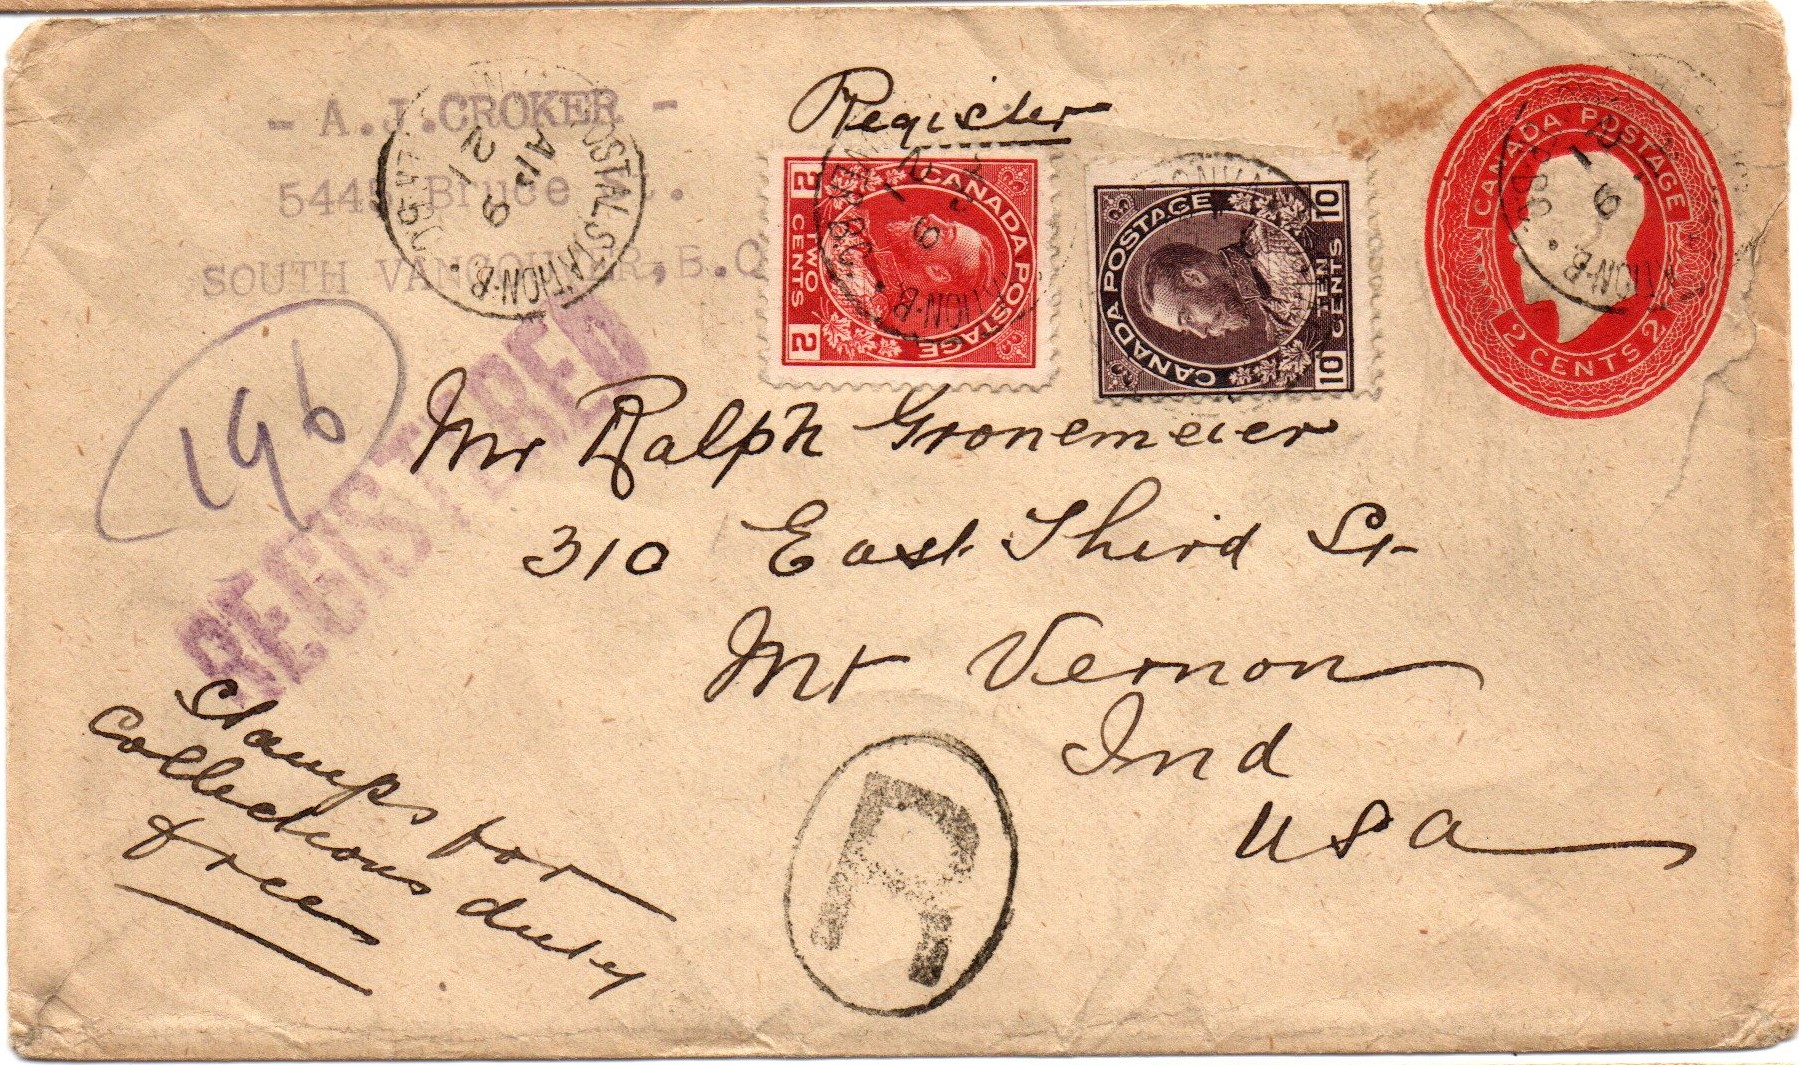 - A.J.CROKER -
5445 Bruce
SOUTH VANCOUVER, B.C
POSTAL STATION-B.
AP
9
21
Register
CANADA POSTAGE
2 2
TWO
CENTS
CANADA POSTAGE
10 10
TEN
CENTS
CANADA POSTAGE
2 CENTS 2
196
REGISTERED
Mr Ralph Gronemeier
310 East Third St
Mt Vernon
Ind
USA
Stamps for
Collections duty
free
R